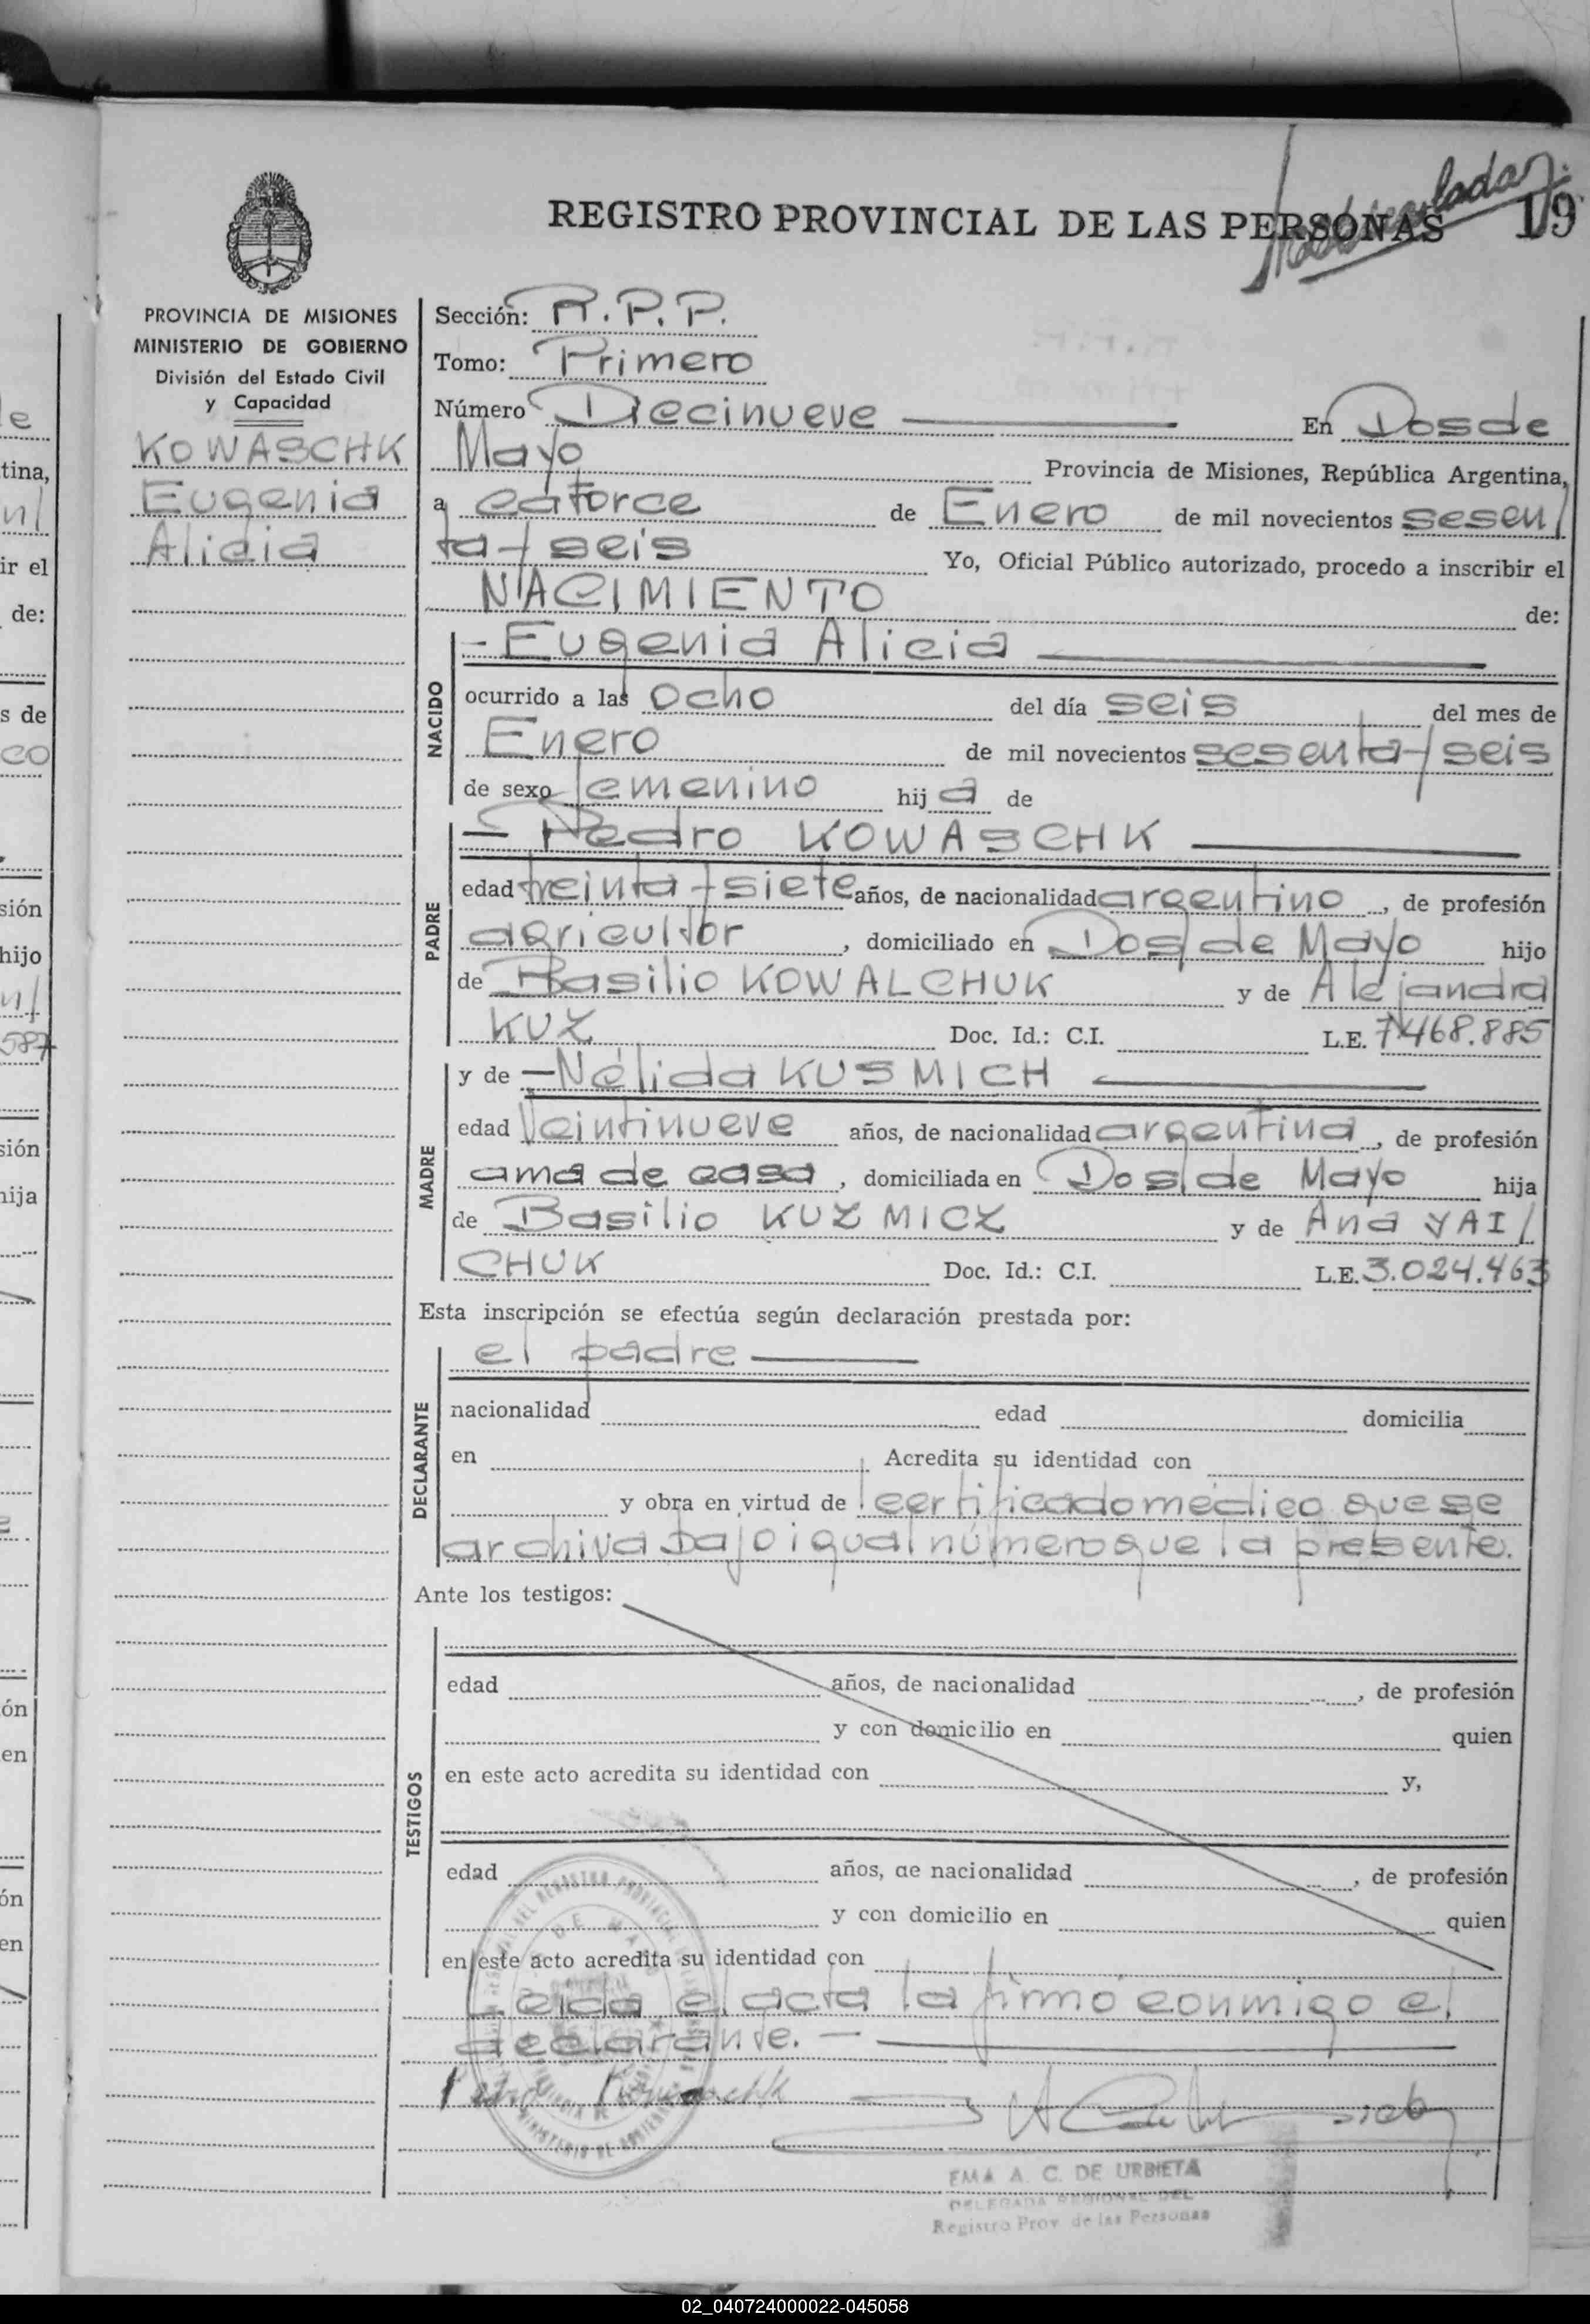 REGISTRO PROVINCIAL DE LAS PERSONAS 19
PROVINCIA DE MISIONES
MINISTERIO DE GOBIERNO
División del Estado Civil
y Capacidad
KOWASCHK
Eugenia
Alicia
Sección: R.P.P.
Tomo: Primero
Número Diecinueve En Dos de
Mayo Provincia de Misiones, República Argentina,
a catorce de Enero de mil novecientos sesen/
ta y seis Yo, Oficial Público autorizado, procedo a inscribir el
NACIMIENTO de:
NACIDO
- Eugenia Alicia
ocurrido a las ocho del día seis del mes de
Enero de mil novecientos sesenta y seis
de sexo femenino hija de
PADRE
- Pedro KOWASCHK
edad treinta y siete años, de nacionalidad argentino, de profesión
agricultor, domiciliado en Dos de Mayo hijo
de Basilio KOWALCHUK y de Alejandra
KUZ Doc. Id.: C.I. L.E. 7.468.885
MADRE
y de - Nélida KUSMICH
edad Veintinueve años, de nacionalidad argentina, de profesión
ama de casa, domiciliada en Dos de Mayo hija
de Basilio KUZMICZ y de Ana YAI/
CHUK Doc. Id.: C.I. L.E. 3.024.463
Esta inscripción se efectúa según declaración prestada por:
DECLARANTE
el padre
nacionalidad edad domicilia
en Acredita su identidad con
y obra en virtud de certificado médico que se
archiva bajo igual número que la presente.
Ante los testigos:
TESTIGOS
edad años, de nacionalidad , de profesión
y con domicilio en quien
en este acto acredita su identidad con y,
edad años, de nacionalidad , de profesión
y con domicilio en quien
en este acto acredita su identidad con
Leida el acta la firmó conmigo el
declarante. -
Pedro Kowaschk
EMA A. C. DE URBIETA
DELEGADA REGIONAL DEL
Registro Prov. de las Personas
02_040724000022-045058